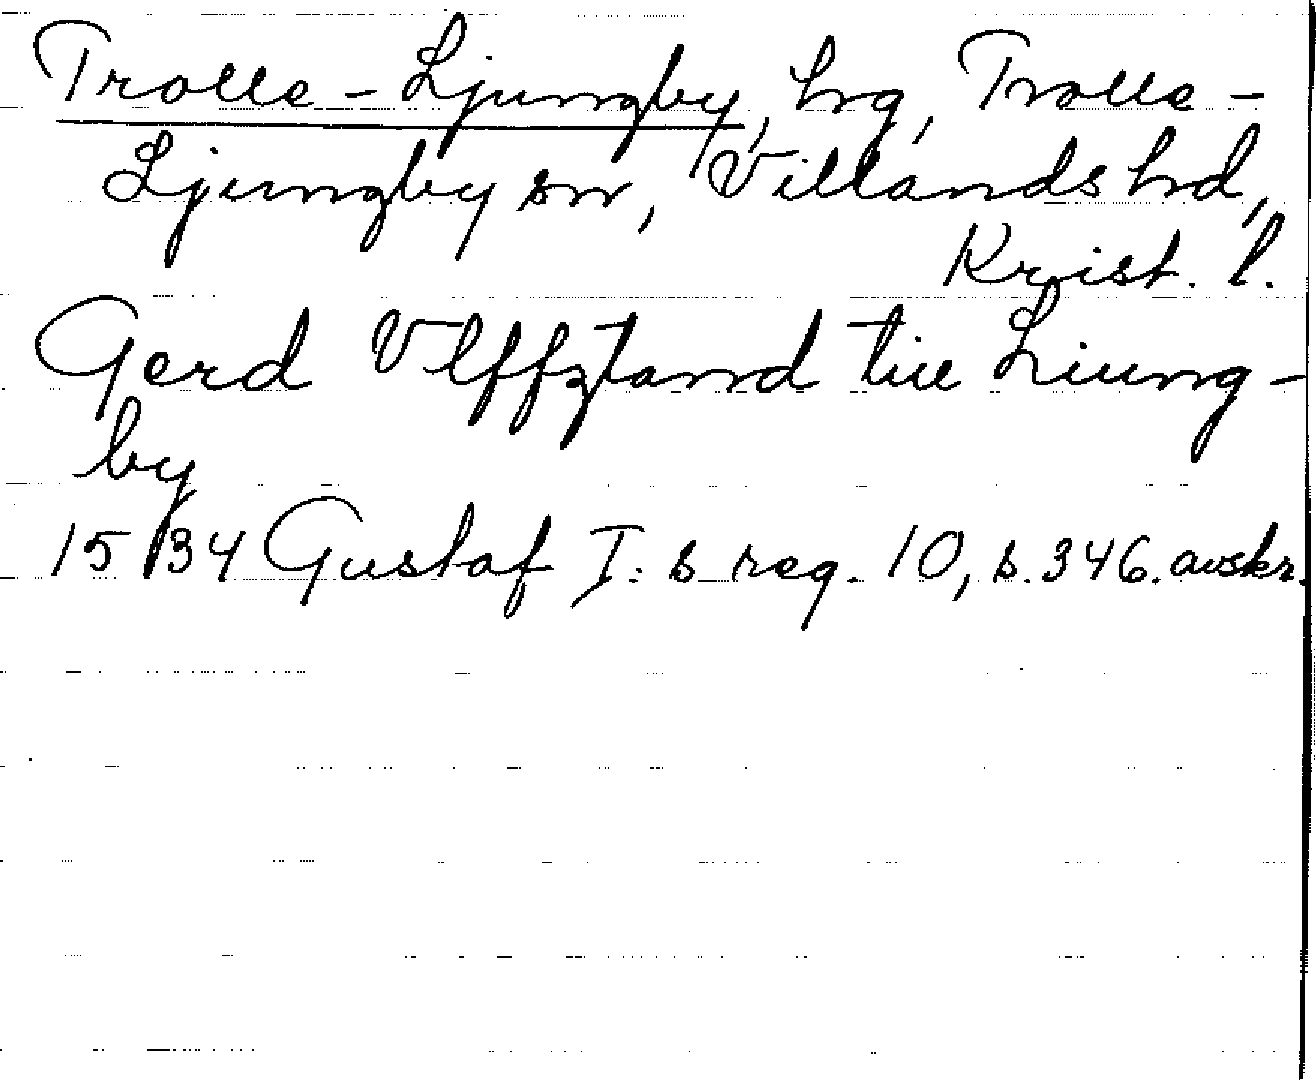 Trolle-Ljungby, hrg, Trolle-
Ljungby sn, Villands hrd,
Krist. l.
Gerd Vlffztand till Liung-
by
1534 Gustaf I:s reg. 10, s. 346. avskr.